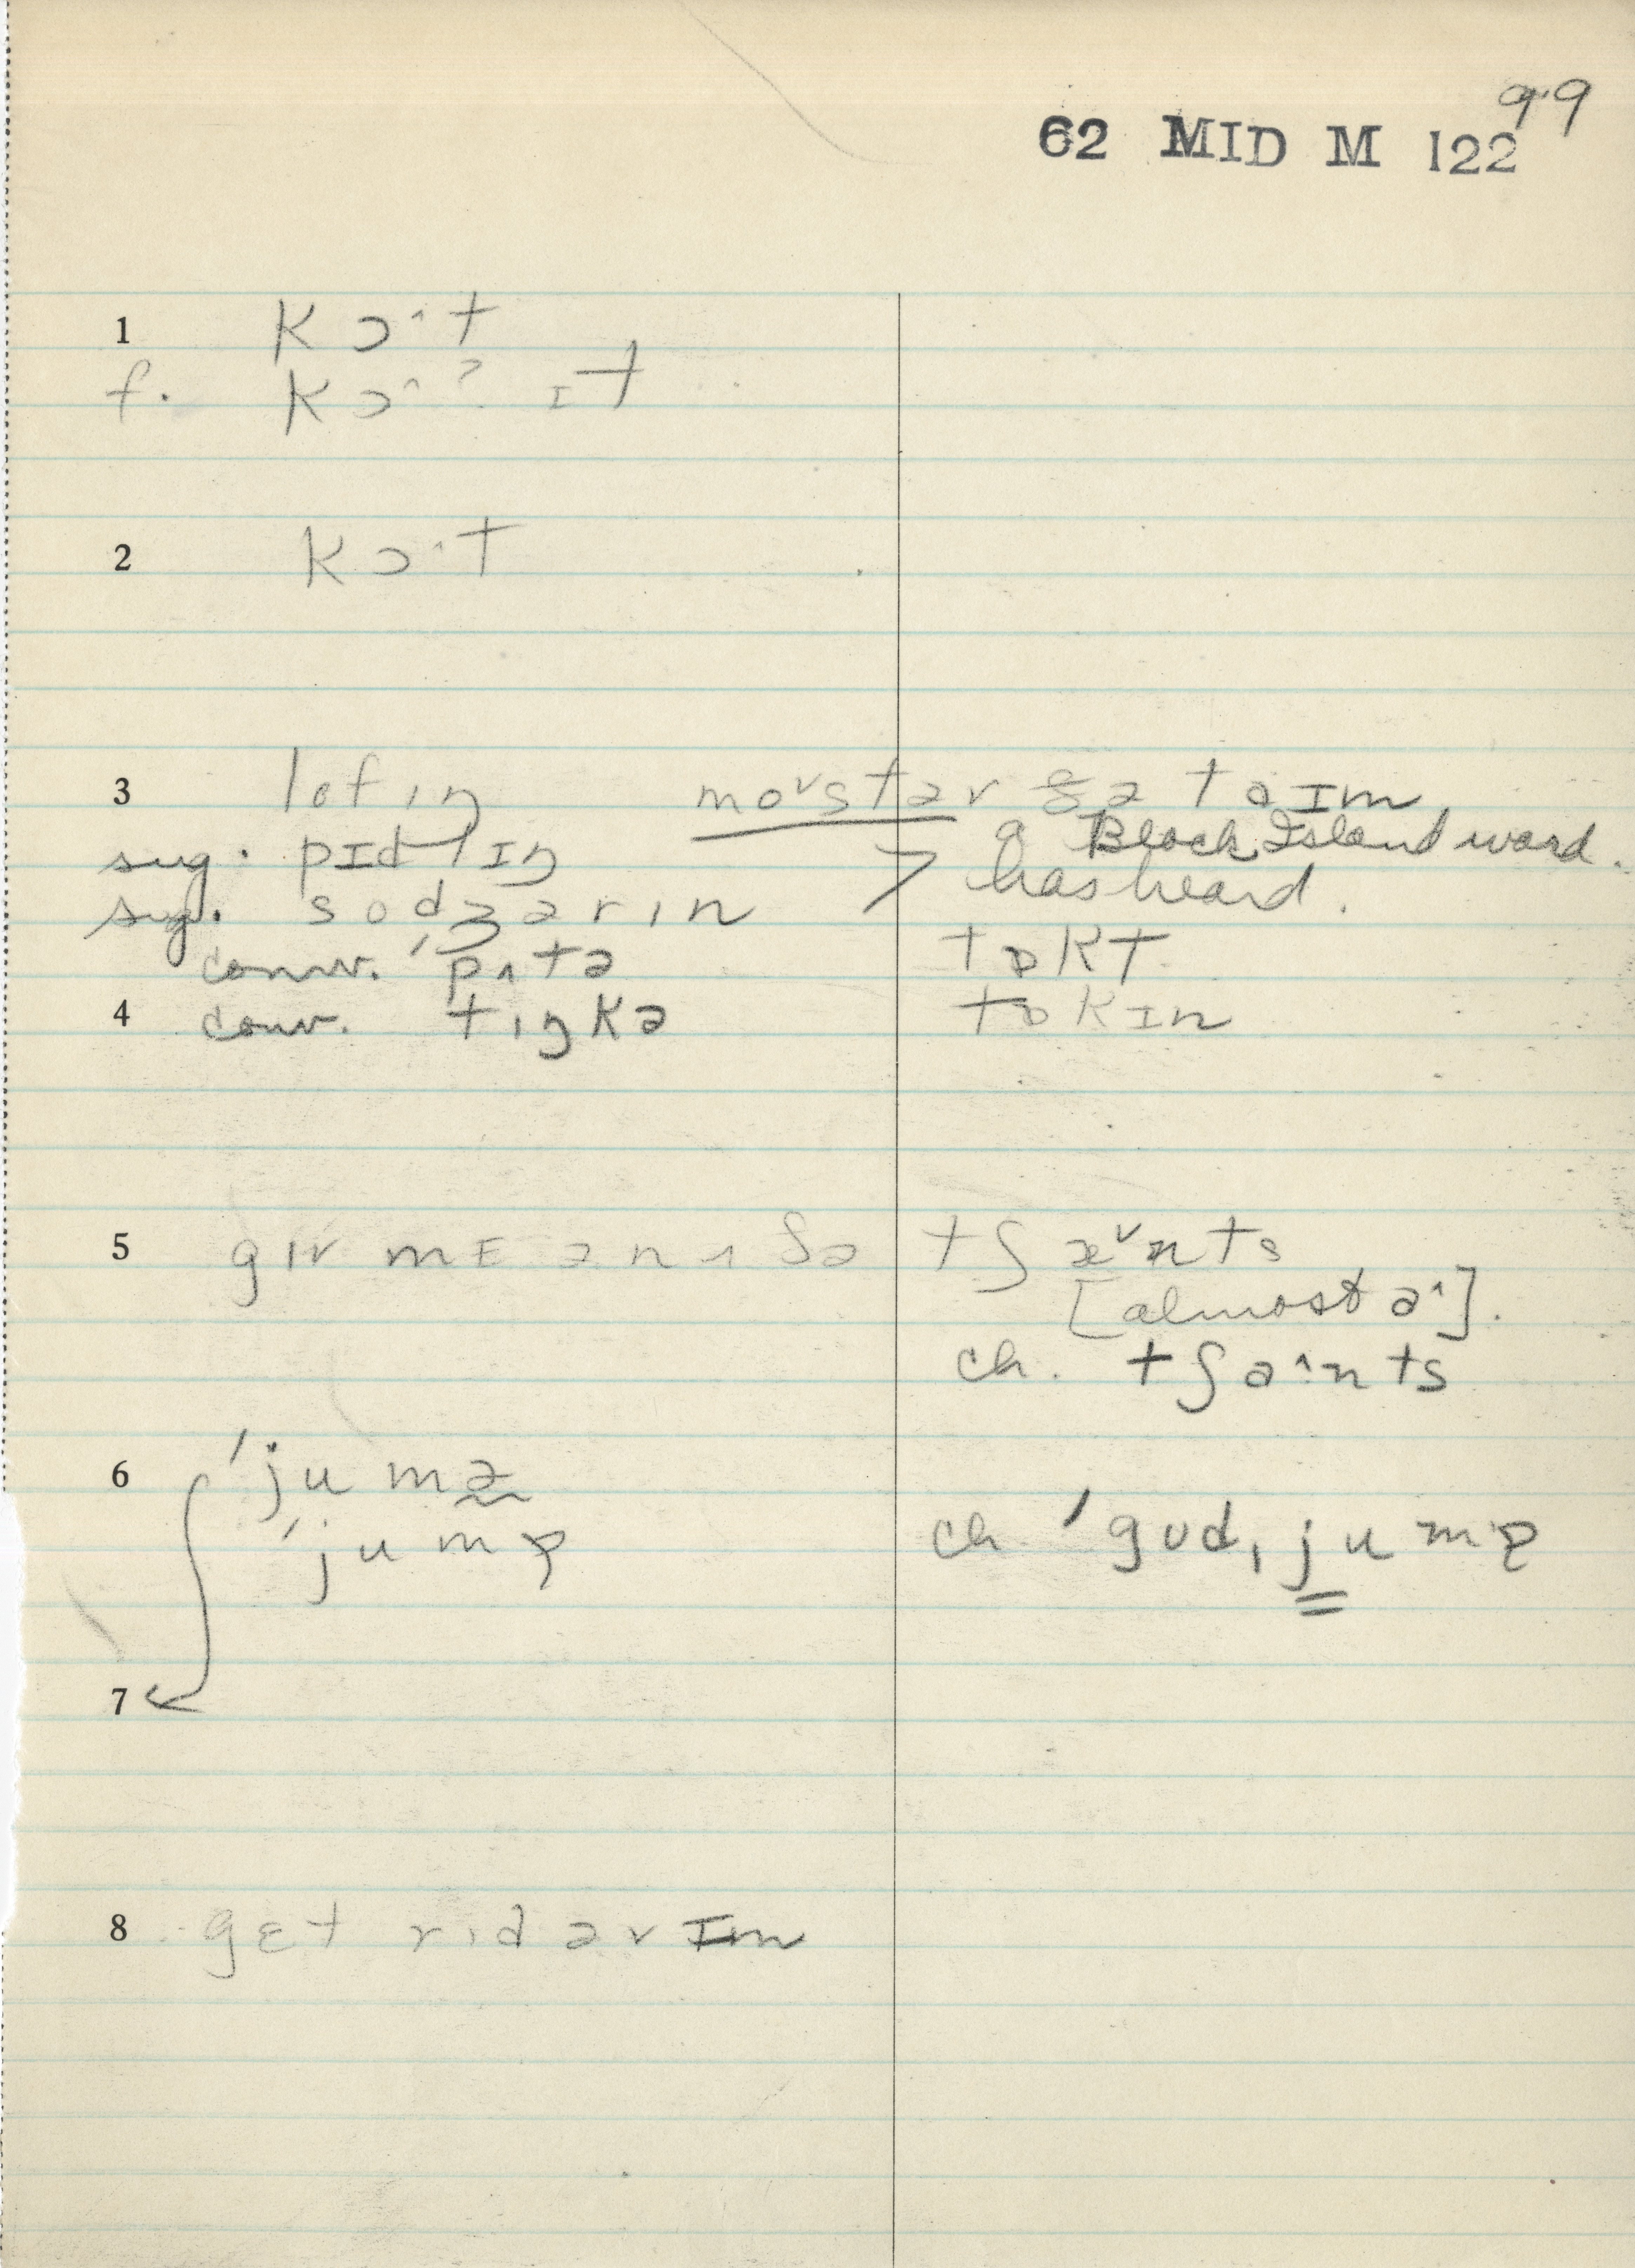 99
62 MID M 122
1 kɔ^·t
f. kɔ^·ʔ ɪt
2 kɔ^·t
3 lofɪŋ moᵛstəv ðə taɪm
sug. pɪdlɪŋ > a Block Island word.
sug. sodʒərɪn has heard.
conv. 'pʌtə tɒkt
4 conv. tɪŋkə tɒkɪn
5 gɪv mɛ ənʌðə tʃæᵛnts
[almost a^].
ch. tʃa^·nts
6 'jumə
'jumɚ ch. 'gʊdˌjumɚ
7
8 gɛt rɪd əv ɪm